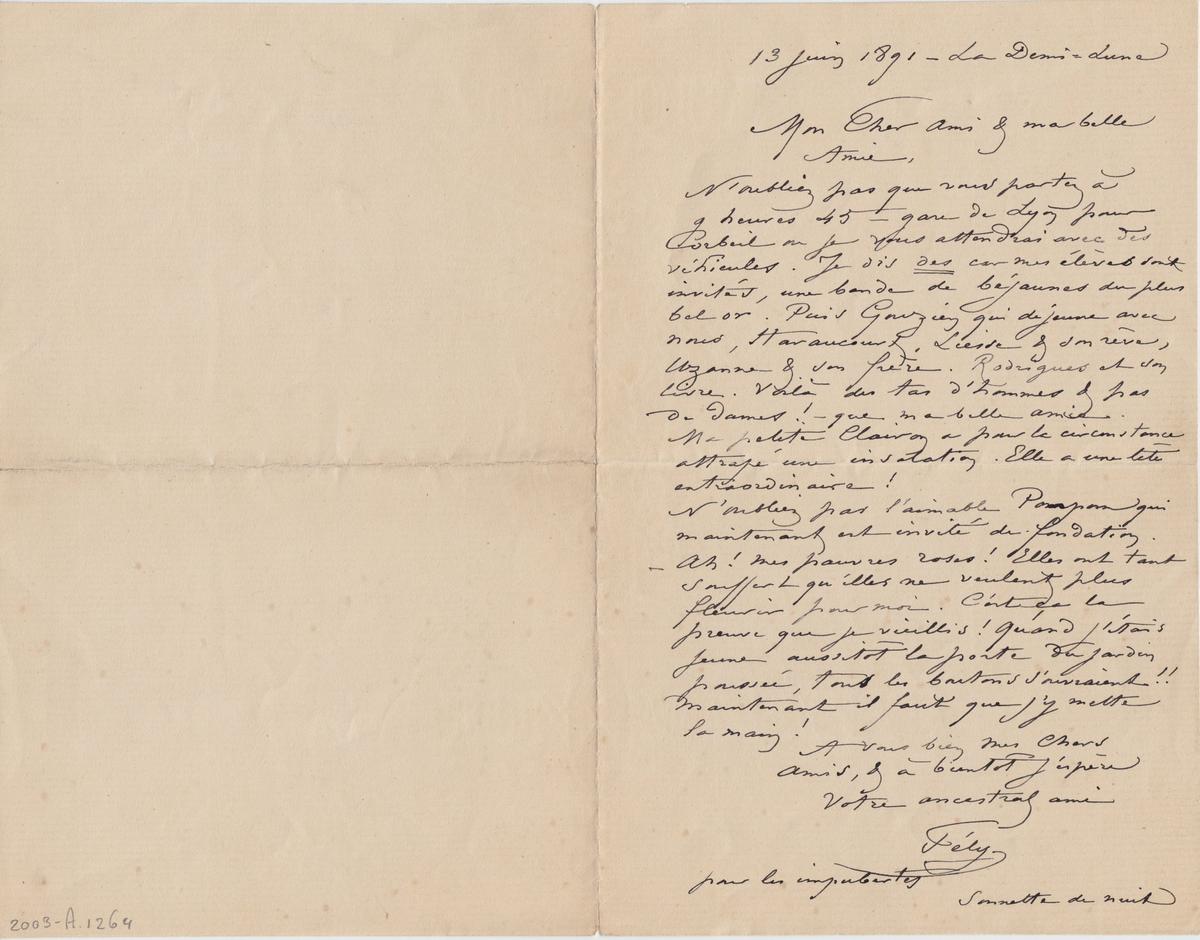 13 juin 1891 – La Demi=Lune
Mon Cher Ami & ma belle
Amie,
N'oubliez pas que vous partez à
9 heures 45 – gare de Lyon pour
Corbeil ou je vous attendrai avec des
véhicules. Je dis des car mes élèves sont
invités, une bande de béjaunes du plus
bel or. Puis Gouzien qui déjeune avec
nous, Haraucourt, Liesse & son rêve,
Uzanne & son frère. Rodrigues et son
livre. Voilà des tas d'hommes & pas
de dames!! – que ma belle amie.
Ma petite Clairon a pour la circonstance
attrapé une insolation. Elle a une tête
extraordinaire!
N'oubliez pas l'aimable Pompom qui
maintenant est invité de fondation.
– Ah! mes pauvres roses! Elles ont tant
souffert qu'elles ne veulent plus
fleurir pour moi. C'est la
preuve que je vieillis! Quand j'étais
jeune aussitôt la porte du jardin
poussée, tous les boutons s'ouvraient!!
Maintenant il faut que j'y mette
la main!
A vous bien mes Chers
Amis, & à bientot j'espère
Votre ancestral ami
Fély
pour les impubertes
Sonnette de nuit
2003-A.1264